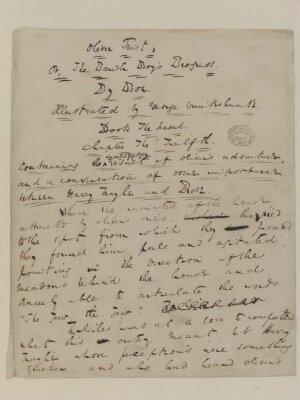 Oliver Twist,
Or, The Parish Boy's Progress.
By Boz.
Illustrated by George Cruikshank.
Book The Second
Chapter The Twelfth.
Containing the unsatisfactory result of Oliver's adventure,
and a conversation of some importance
between Harry Maylie and Rose.
When the inmates of the house
attracted by Oliver's cries hurried
to the spot from which they proceeded
they found him pale and agitated
pointing in the direction of the
meadows behind the house and
scarcely able to articulate the words
"The Jew the Jew"
was at a loss to comprehend
what this outcry meant but Harry
Maylie whose perceptions were something
quicker and who had heard Oliver's